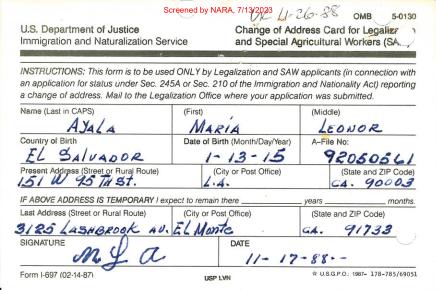 Screened by NARA, 7/13/2023
11-26-88 OMB 5-0130
U.S. Department of Justice Change of Address Card for Legaliz
Immigration and Naturalization Service and Special Agricultural Workers (SA
INSTRUCTIONS: This form is to be used ONLY by Legalization and SAW applicants (in connection with
an application for status under Sec. 245A or Sec. 210 of the Immigration and Nationality Act) reporting
a change of address. Mail to the Legalization Office where your application was submitted.
Name (Last in CAPS) (First) (Middle)
AYALA MARIA LEONOR
Country of Birth Date of Birth (Month/Day/Year) A-File No:
EL SALVADOR 1-13-15 92050561
Present Address (Street or Rural Route) (City or Post Office) (State and ZIP Code)
151 W 95 TH ST. L.A. CA. 90003
IF ABOVE ADDRESS IS TEMPORARY I expect to remain there years months.
Last Address (Street or Rural Route) (City or Post Office) (State and ZIP Code)
3125 LASHBROOK AV. EL MONTE CA. 91733
SIGNATURE DATE
M L A 11-17-88--
Form I-697 (02-14-87) USP LVN ☆ U.S.G.P.O.: 1987- 178-785/69051